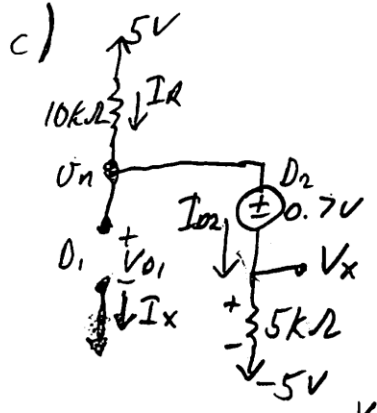 c)
5V
10kΩ
I_R
v_n
D_2
0.7V
I_D2
D_1
+
V_D1
-
I_X
V_X
+
5kΩ
-
-5V